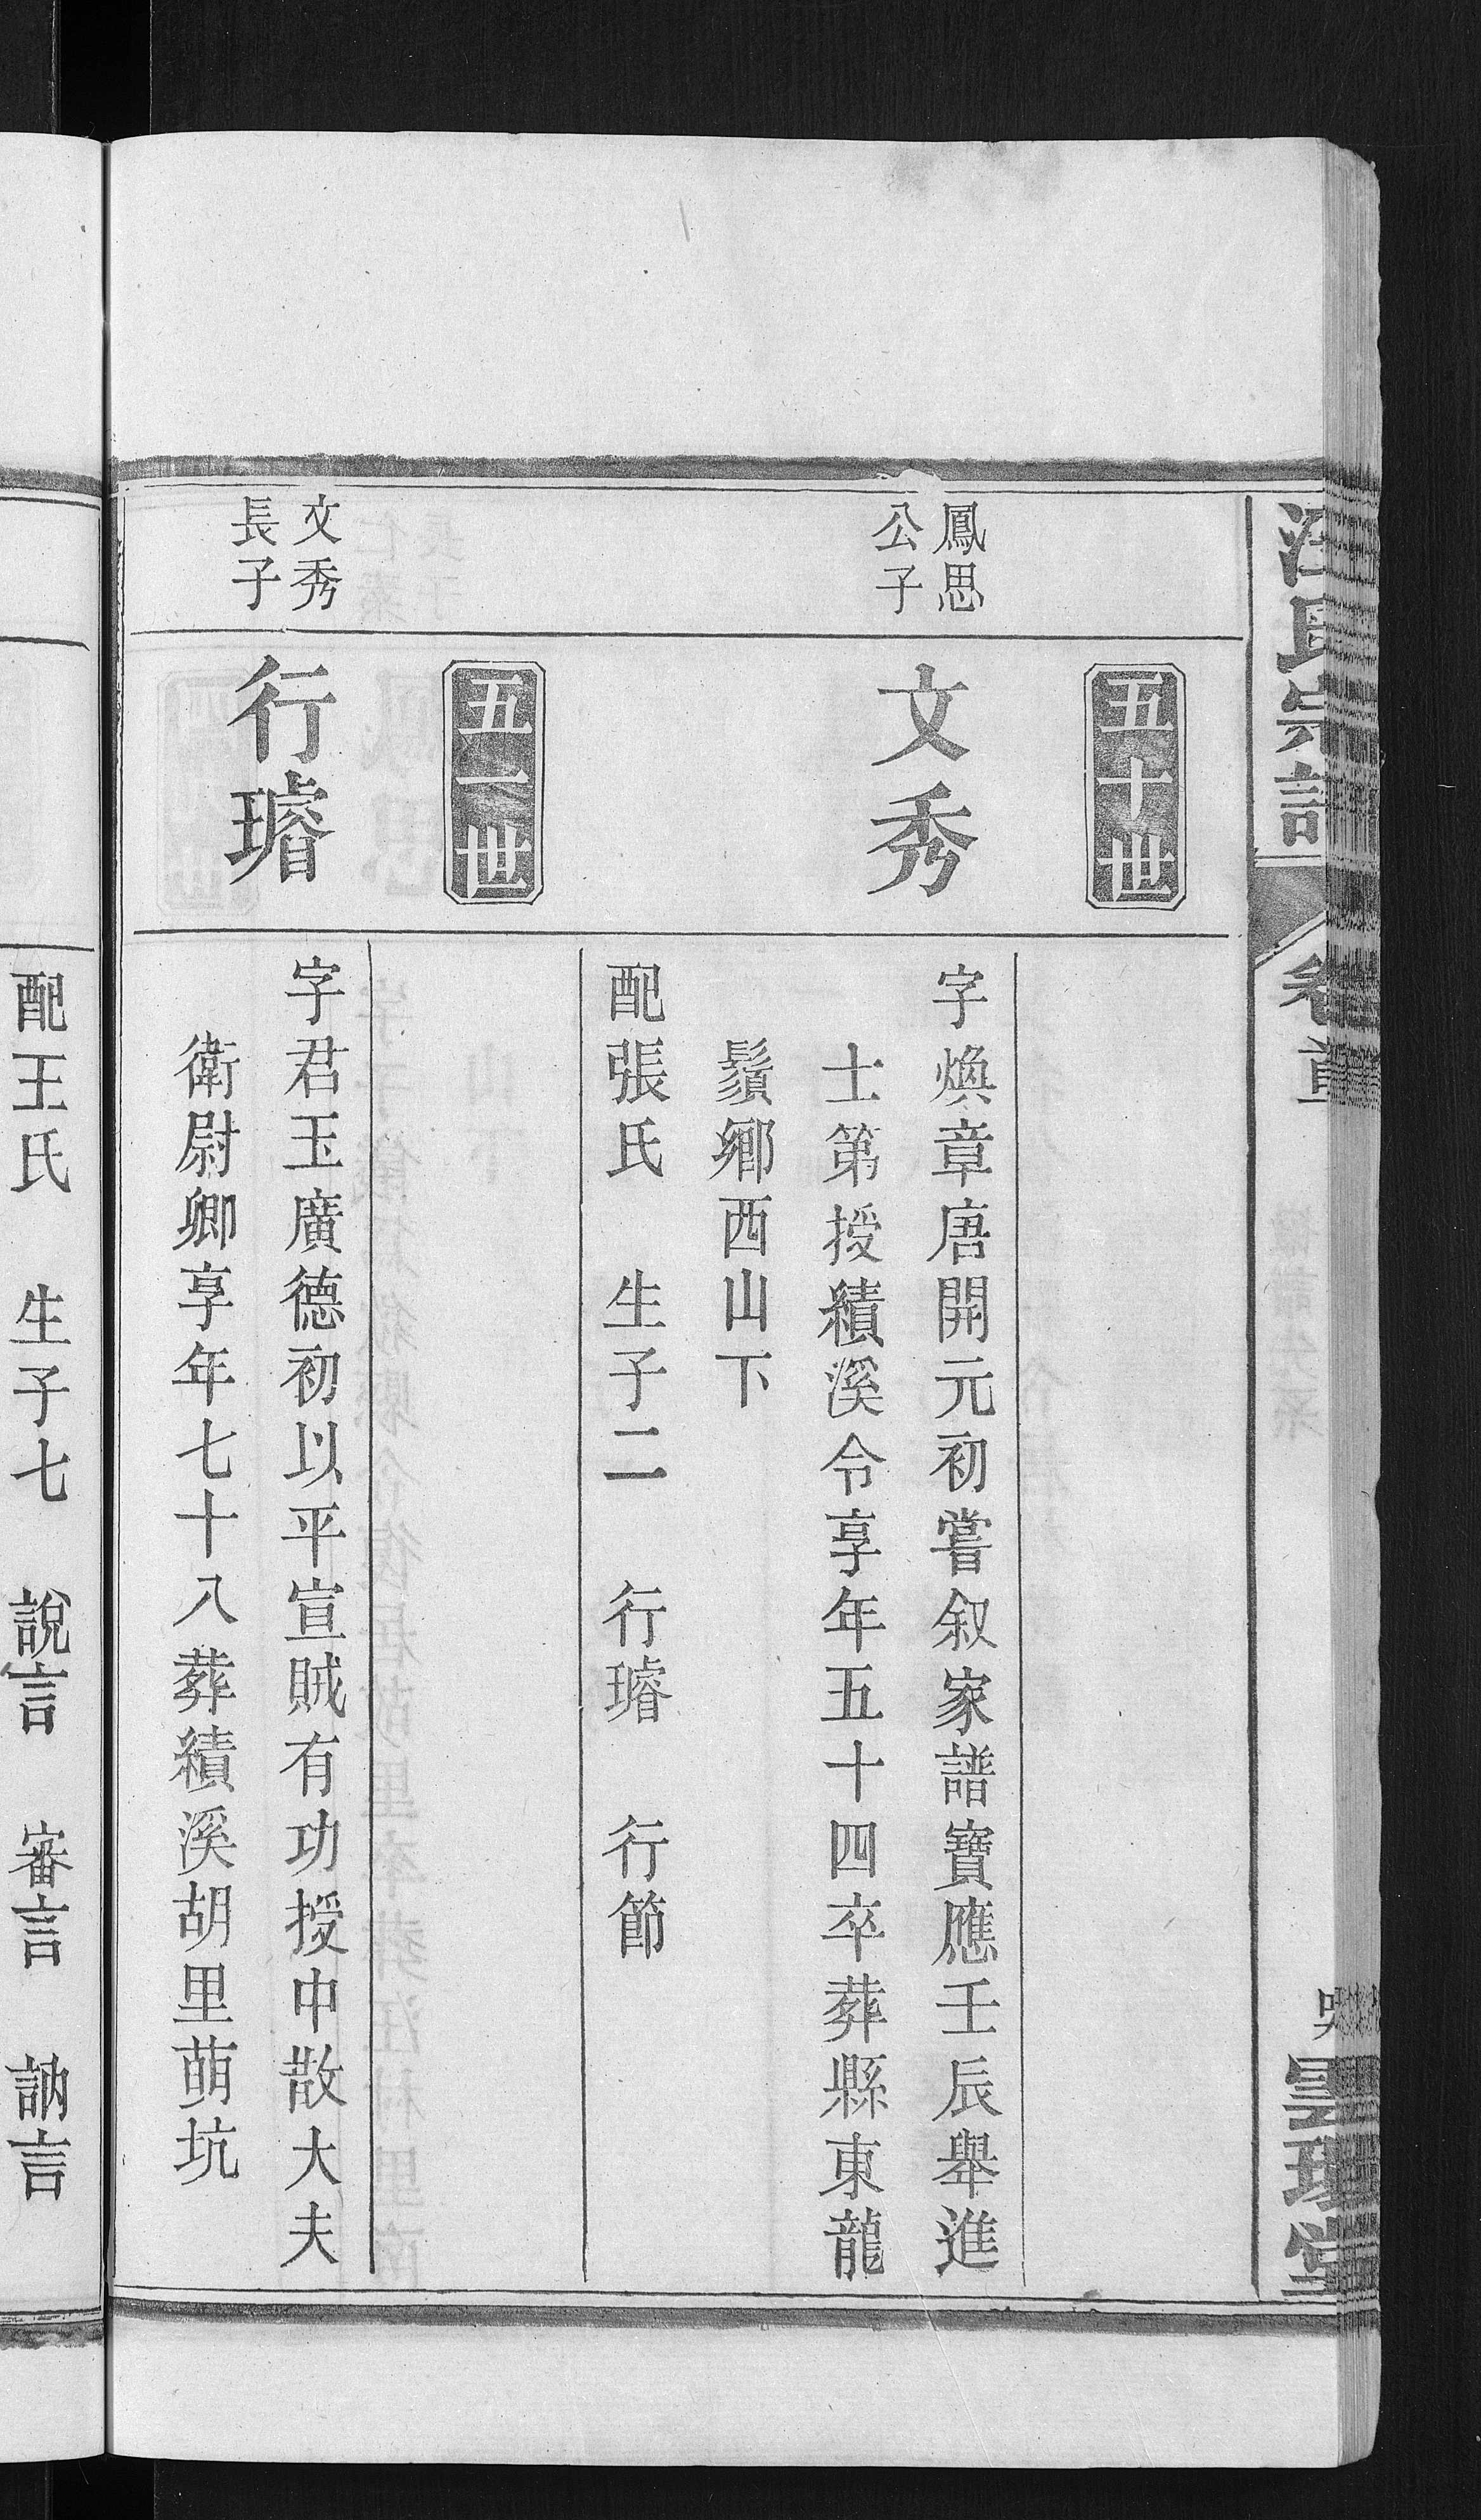 汪氏宗譜
卷首
五十世
鳳思
公子
文秀
字煥章唐開元初嘗叙家譜寶應壬辰舉進
士第授績溪令享年五十四卒葬縣東龍
鬚鄉西山下
配張氏 生子二 行璿 行節
五一世
文秀
長子
行璿
字君玉廣德初以平宣賊有功授中散大夫
衛尉卿享年七十八葬績溪胡里萌坑
配王氏 生子七 說言 審言 訥言